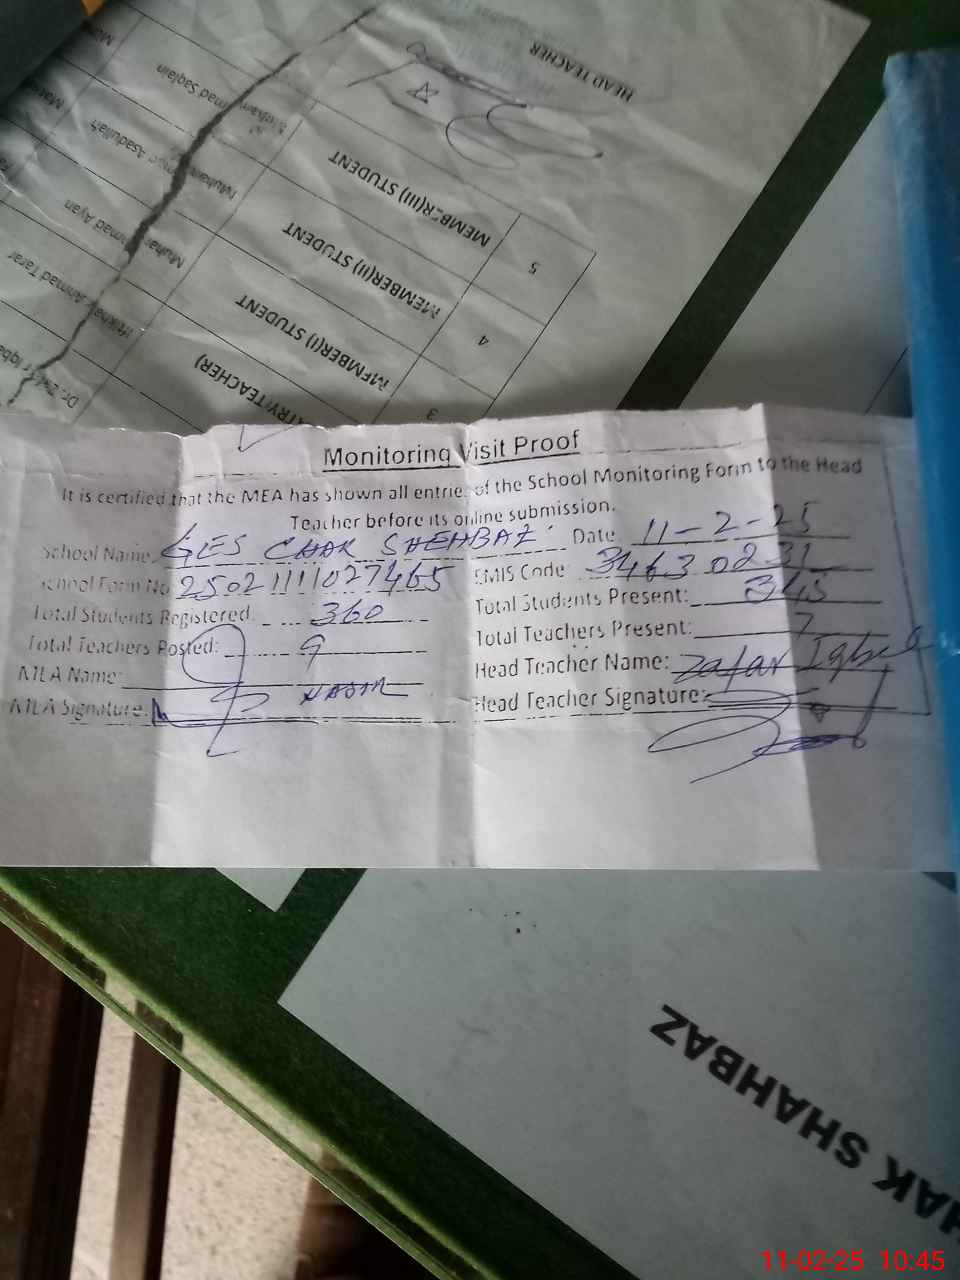 HEAD TEACHER
5 MEMBER(III) STUDENT Muhammad Saqlain
4 MEMBER(II) STUDENT Asadullah
3 MEMBER(I) STUDENT Muhammad Ayan
TEACHER) Ahmad Tarar
Monitoring Visit Proof
It is certified that the MEA has shown all entries of the School Monitoring Form to the Head
Teacher before its online submission.
School Name: GES CHAK SHEHBAZ Date 11-2-25
School Form No 25021111027465 EMIS Code: 34630231
Total Students Registered: 360 Total Students Present: 345
Total Teachers Posted: 9 Total Teachers Present: 7
MEA Name: Head Teacher Name: Zafar Iqbal
MEA Signature: Head Teacher Signature:
HAK SHAHBAZ
11-02-25 10:45